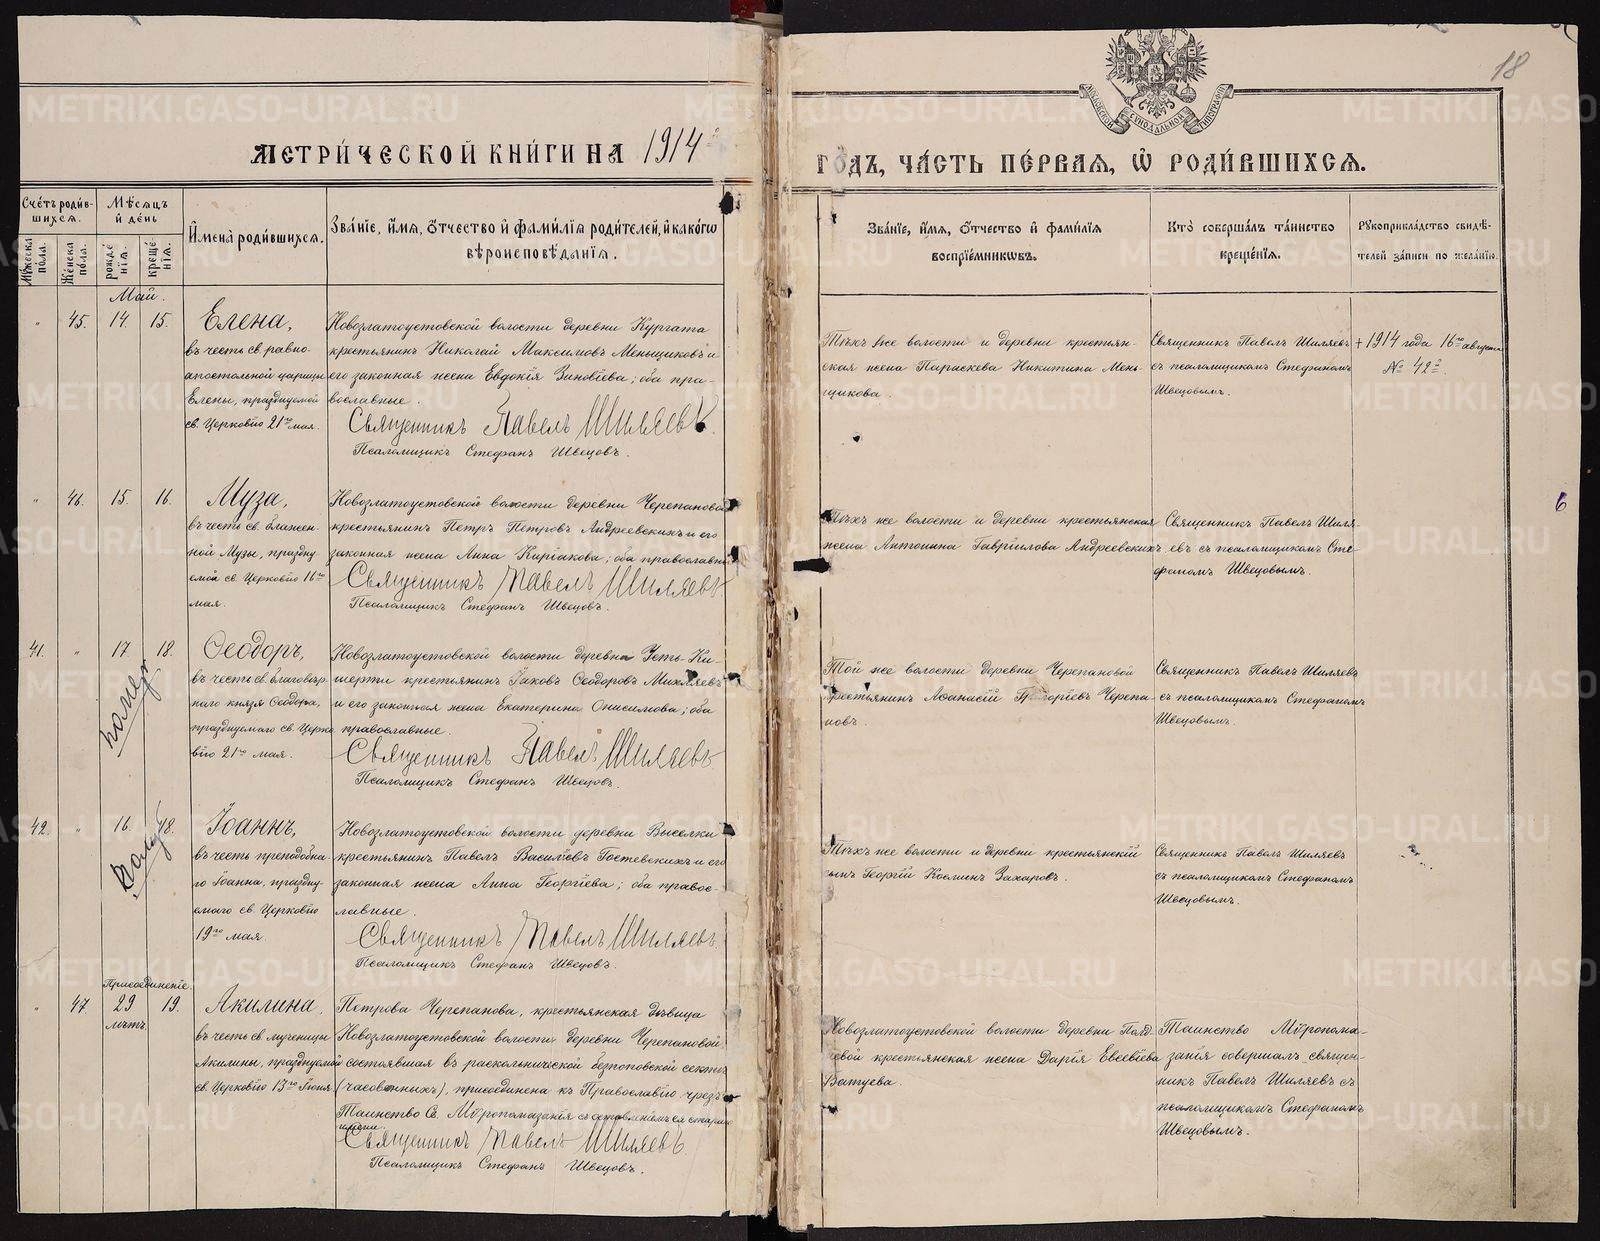 18
МОСКОВСКОЙ СѴНОДАЛЬНОЙ ТИПОГРАФІИ
МЕТРИ́ЧЕСКОЙ КНИ́ГИ НА 1914й
ГО́ДЪ, ЧА́СТЬ ПЕ́РВАѦ, Ѡ҆ РОДИ́ВШИХСѦ.
Сче́тъ роди́в-
шихсѧ.
Мꙋжеска по́ла.
Женска по́ла.
Мѣ́сѧцъ и҆ де́нь
рожде́нїѧ.
креще́нїѧ.
И҆мена̀ роди́вшихсѧ.
Зва́нїе, и҆́мѧ, ѻ҆́тчество и҆ фами́лїѧ роди́телей, и҆ како́гѡ
вѣроисповѣ́данїѧ.
Зва́нїе, и҆́мѧ, ѻ҆́тчество и҆ фами́лїѧ
воспрїе́мникѡвъ.
Кто̀ соверша́лъ та́инство
креще́нїѧ.
Рꙋкоприкла́дство свидѣ́-
телей за́писи по жела́нїю.
Май.
" 45. 14. 15.
Елена,
въ честь св. равно-
апостольной царицы
Елены, празднуемой
св. Церковію 21го мая.
Новозлатоустовской волости деревни Кургата
крестьянинъ Николай Максимовъ Меньщиковъ и
его законная жена Евдокія Зиновіева; оба пра-
вославные.
Священникъ Павелъ Шиляевъ
Псаломщикъ Стефанъ Швецовъ.
Тѣхъ же волости и деревни крестьян-
ская жена Параскева Никитина Мень-
щикова.
Священникъ Павелъ Шиляевъ
съ псаломщикомъ Стефаномъ
Швецовымъ.
+ 1914 года 16го августа
№ 42й.
" 46. 15. 16.
Муза,
въ честь св. блажен-
ной Музы, праздну-
емой св. Церковію 16го
мая.
Новозлатоустовской волости деревни Черепановой
крестьянинъ Петръ Петровъ Андреевскихъ и его
законная жена Анна Киріакова; оба православны
Священникъ Павелъ Шиляевъ
Псаломщикъ Стефанъ Швецовъ.
Тѣхъ же волости и деревни крестьянская
жена Антонина Гавріилова Андреевскихъ
Священникъ Павелъ Шиля-
евъ съ псаломщикомъ Сте-
фаномъ Швецовымъ.
6
41. " 17. 18.
Ѳеодоръ,
въ честь св. благовѣр-
наго князя Ѳеодора,
празднуемаго св. Церко-
вію 21го мая.
Новозлатоустовской волости деревни Усть-Ки-
шерти крестьянинъ Іаковъ Ѳеодоровъ Михляевъ
и его законная жена Екатерина Онисимова; оба
православные.
Священникъ Павелъ Шиляевъ
Псаломщикъ Стефанъ Швецовъ.
Той же волости деревни Черепановой
крестьянинъ Аѳанасій Григоріевъ Черепа-
новъ.
Священникъ Павелъ Шиляевъ
съ псаломщикомъ Стефаномъ
Швецовымъ.
42. " 16. 18.
Іоаннъ,
въ честь преподобна-
го Іоанна, праздну-
емаго св. Церковію
19го мая.
Новозлатоустовской волости деревни Выселки
крестьянинъ Павелъ Василіевъ Гостевскихъ и его
законная жена Анна Георгіева; оба правос-
лавные.
Священникъ Павелъ Шиляевъ
Псаломщикъ Стефанъ Швецовъ.
Тѣхъ же волости и деревни крестьянскій
сынъ Георгій Косминъ Захаровъ.
Священникъ Павелъ Шиляевъ
съ псаломщикомъ Стефаномъ
Швецовымъ.
Присоединеніе.
" 47. 29 лѣтъ. 19.
Акилина,
въ честь св. мученицы
Акилины, празднуемой
св. Церковію 13го Іюня.
Петрова Черепанова, крестьянская дѣвица
Новозлатоустовской волости деревни Черепановой
состоявшая въ раскольнической безпоповской сектѣ
(часовенныхъ), присоединена къ Православію чрезъ
Таинство Св. Мѵропомазанія съ оставленіемъ ея стараго
имени.
Священникъ Павелъ Шиляевъ
Псаломщикъ Стефанъ Швецовъ.
Новозлатоустовской волости деревни
крестьянская жена Дарія Евсевіева
Ватуева.
Таинство Мѵропома-
занія совершалъ священ-
никъ Павелъ Шиляевъ съ
псаломщикомъ Стефаномъ
Швецовымъ.
METRIKI.GASO-URAL.RU